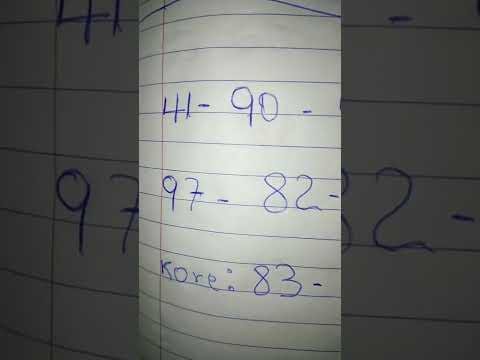 41- 90 -
97 - 82 -
Kore: 83 -